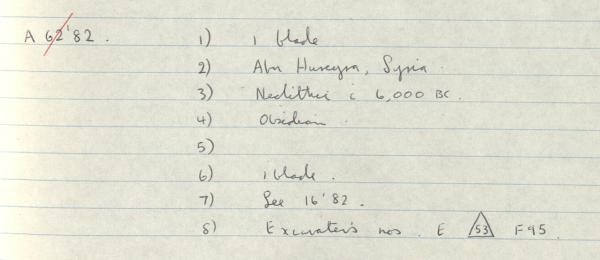 A 62'82. 1) 1 blade
2) Abu Hureyra, Syria.
3) Neolithic c 6,000 BC.
4) Obsidian.
5)
6) 1 blade.
7) See 16'82.
8) Excavator's nos. E 53 F95.